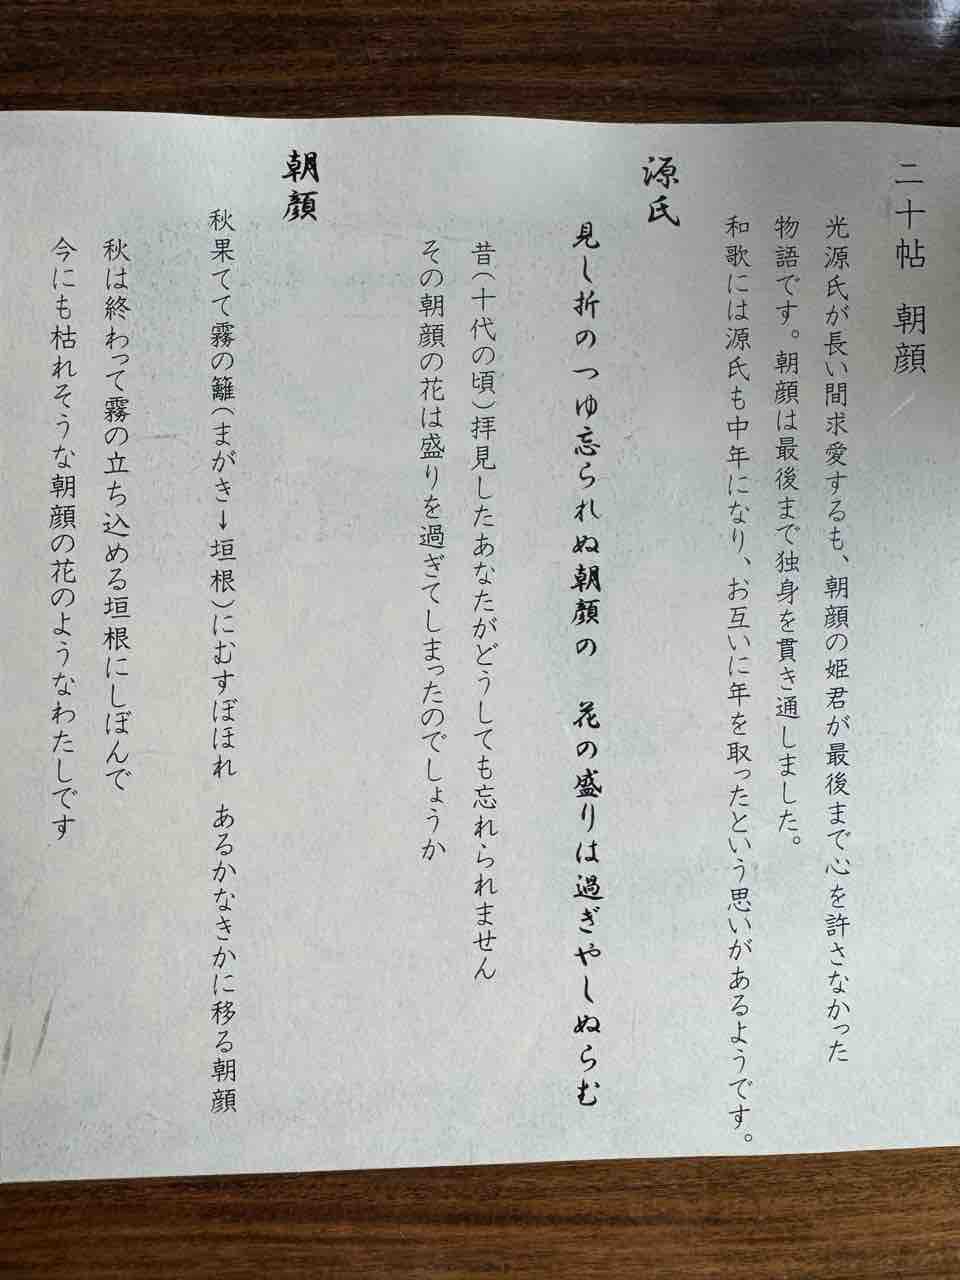 二十帖　朝顔
光源氏が長い間求愛するも、朝顔の姫君が最後まで心を許さなかった
物語です。朝顔は最後まで独身を貫き通しました。
和歌には源氏も中年になり、お互いに年を取ったという思いがあるようです。
源氏
見し折のつゆ忘られぬ朝顔の　花の盛りは過ぎやしぬらむ
昔(十代の頃)拝見したあなたがどうしても忘れられません
その朝顔の花は盛りを過ぎてしまったのでしょうか
朝顔
秋果てて霧の籬(まがき→垣根)にむすぼほれ　あるかなきかに移る朝顔
秋は終わって霧の立ち込める垣根にしぼんで
今にも枯れそうな朝顔の花のようなわたしです